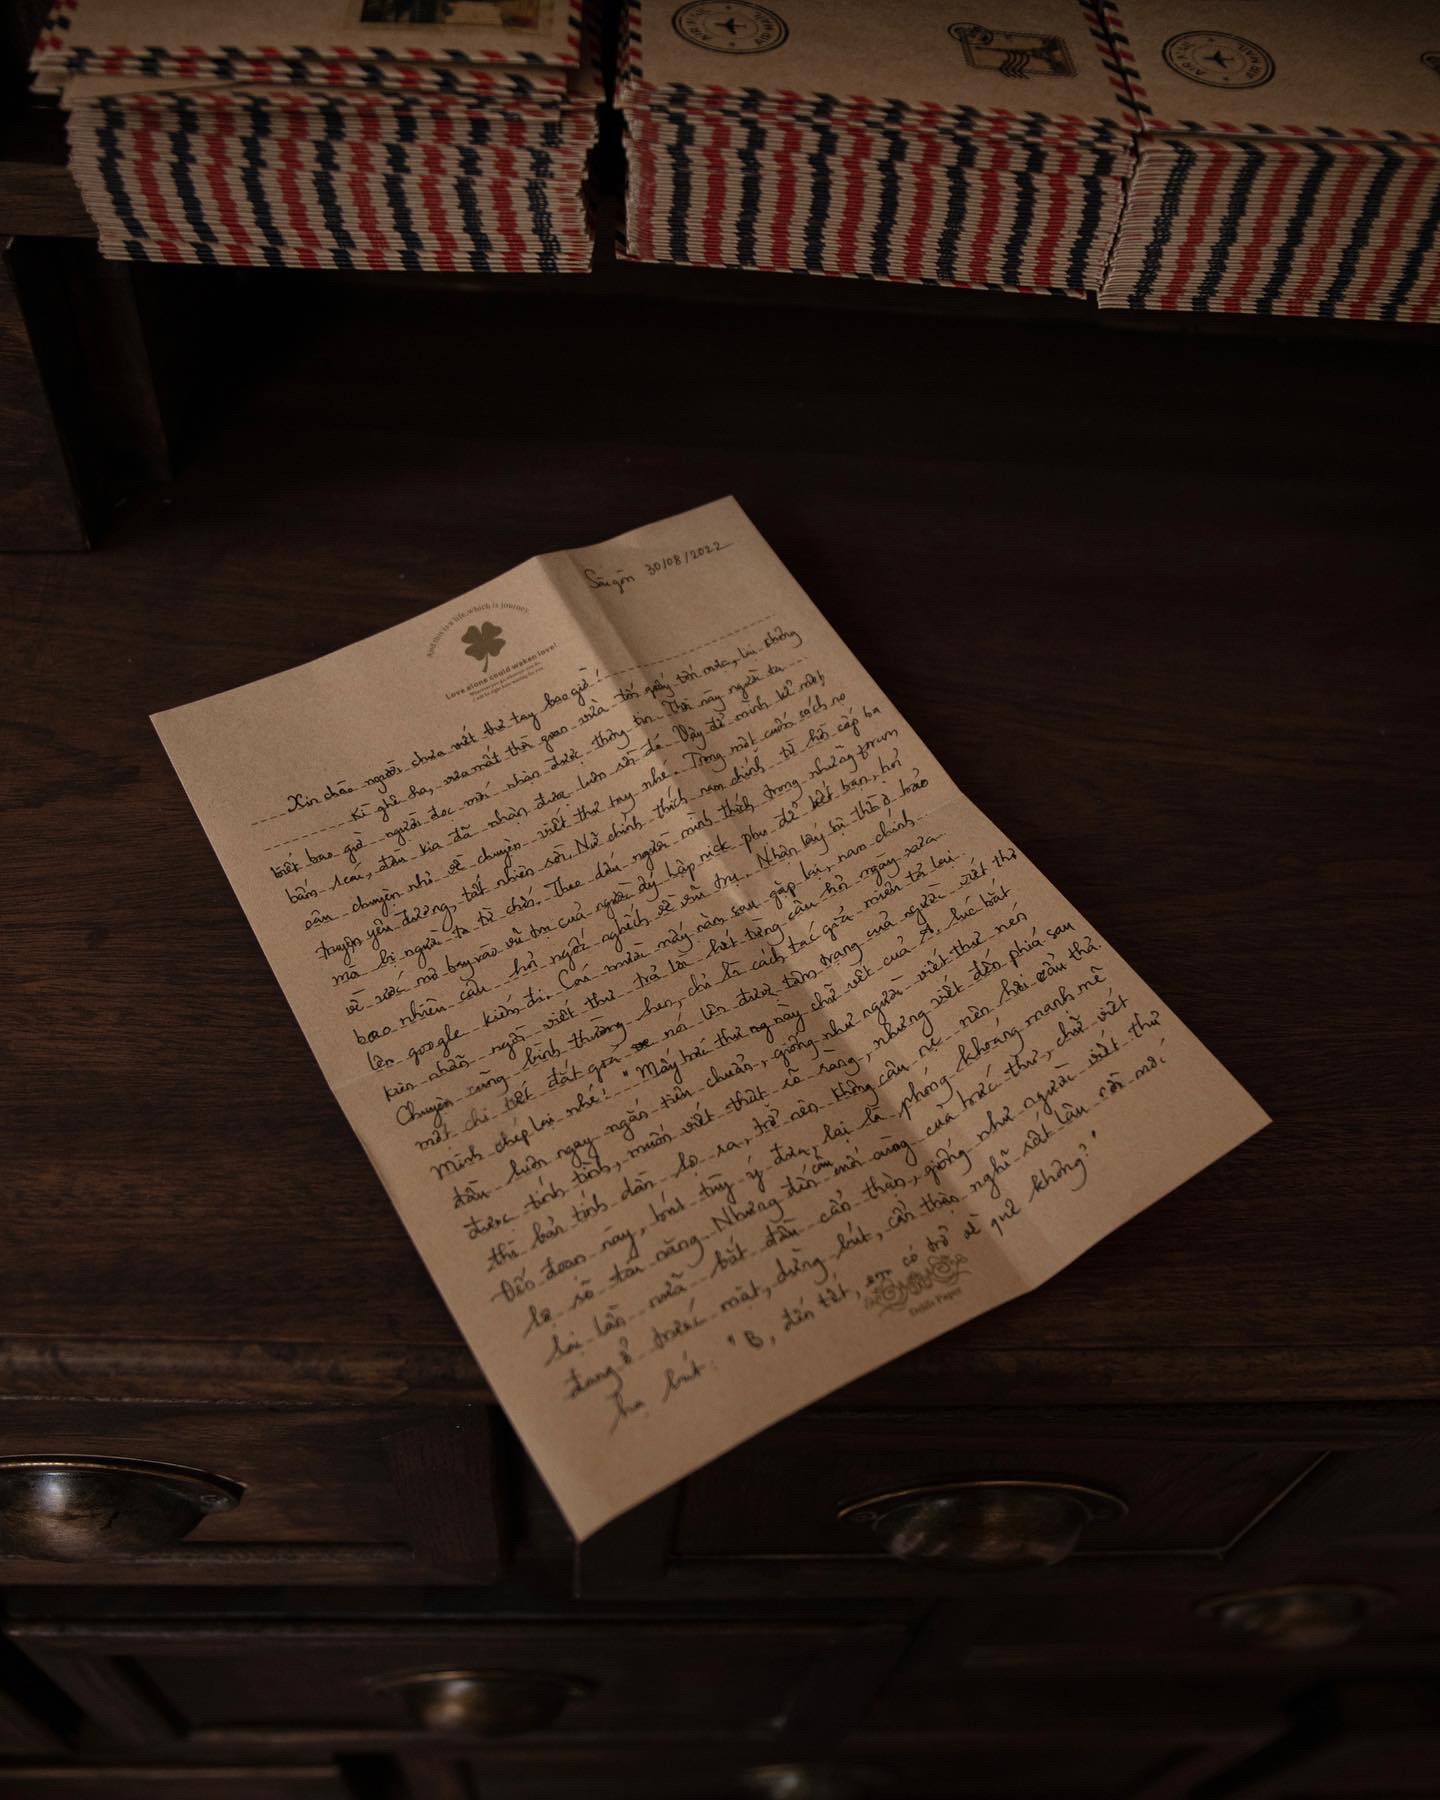 AIR MAIL
AIR MAIL
AIR MAIL
AIR MAIL
Sài gòn 30/08/2022
And this is a life, which is journey.
Love alone could waken love!
Xin chào người chưa viết thư tay bao giờ!
Kì ghê ha, vừa mất thời gian vừa tốn giấy tốn mực, lại không
biết bao giờ người đọc mới nhận được thông tin. Thời nay người ta
bấm send, đầu kia đã nhận được luôn rồi đó. Vậy để mình kể một
câu chuyện nhỏ về chuyện viết thư tay nhé. Trong một cuốn sách
truyện yêu đương, tất nhiên rồi, Nữ chính thích nam chính từ hồi cấp ba
mà bị người ta từ chối. Theo dấu người mình thích trong những forum
về ước mơ bay vào vũ trụ của người ấy lập nick phụ để kết bạn, hỏi
bao nhiêu câu hỏi ngốc nghếch về vũ trụ. Nhận lấy sự thờ ơ bảo
lên google kiếm đi. mười mấy năm sau gặp lại, nam chính
kiên nhẫn ngồi viết thư trả lời hết từng câu hỏi ngày xưa.
Chuyện cũng bình thường hen, chỉ là cách tác giả miêu tả lại
một chi tiết đắt giá nói lên được tâm trạng của người viết thư
Mình chép lại nhé! "Mấy bức thư này chữ viết của A, lúc bắt
đầu luôn ngay ngắn tiêu chuẩn, giống như người viết thư nén
được tính tình, muốn viết thật rõ ràng, nhưng viết đến phía sau
thì bản tính dần lộ ra, trở nên không câu nệ nên hơi cẩu thả.
Đến đoạn này, bút tùy ý đưa, lại là phóng khoáng mạnh mẽ
lộ rõ tài năng. Nhưng đến câu cuối cùng của bức thư, chữ viết
lại lần nữa bắt đầu cẩn thận, giống như người viết thư
đang ở trước mặt, dừng bút, cẩn thận nghĩ rất lâu rồi mới
hạ bút. "B, đến tết, em có trở về quê không?"